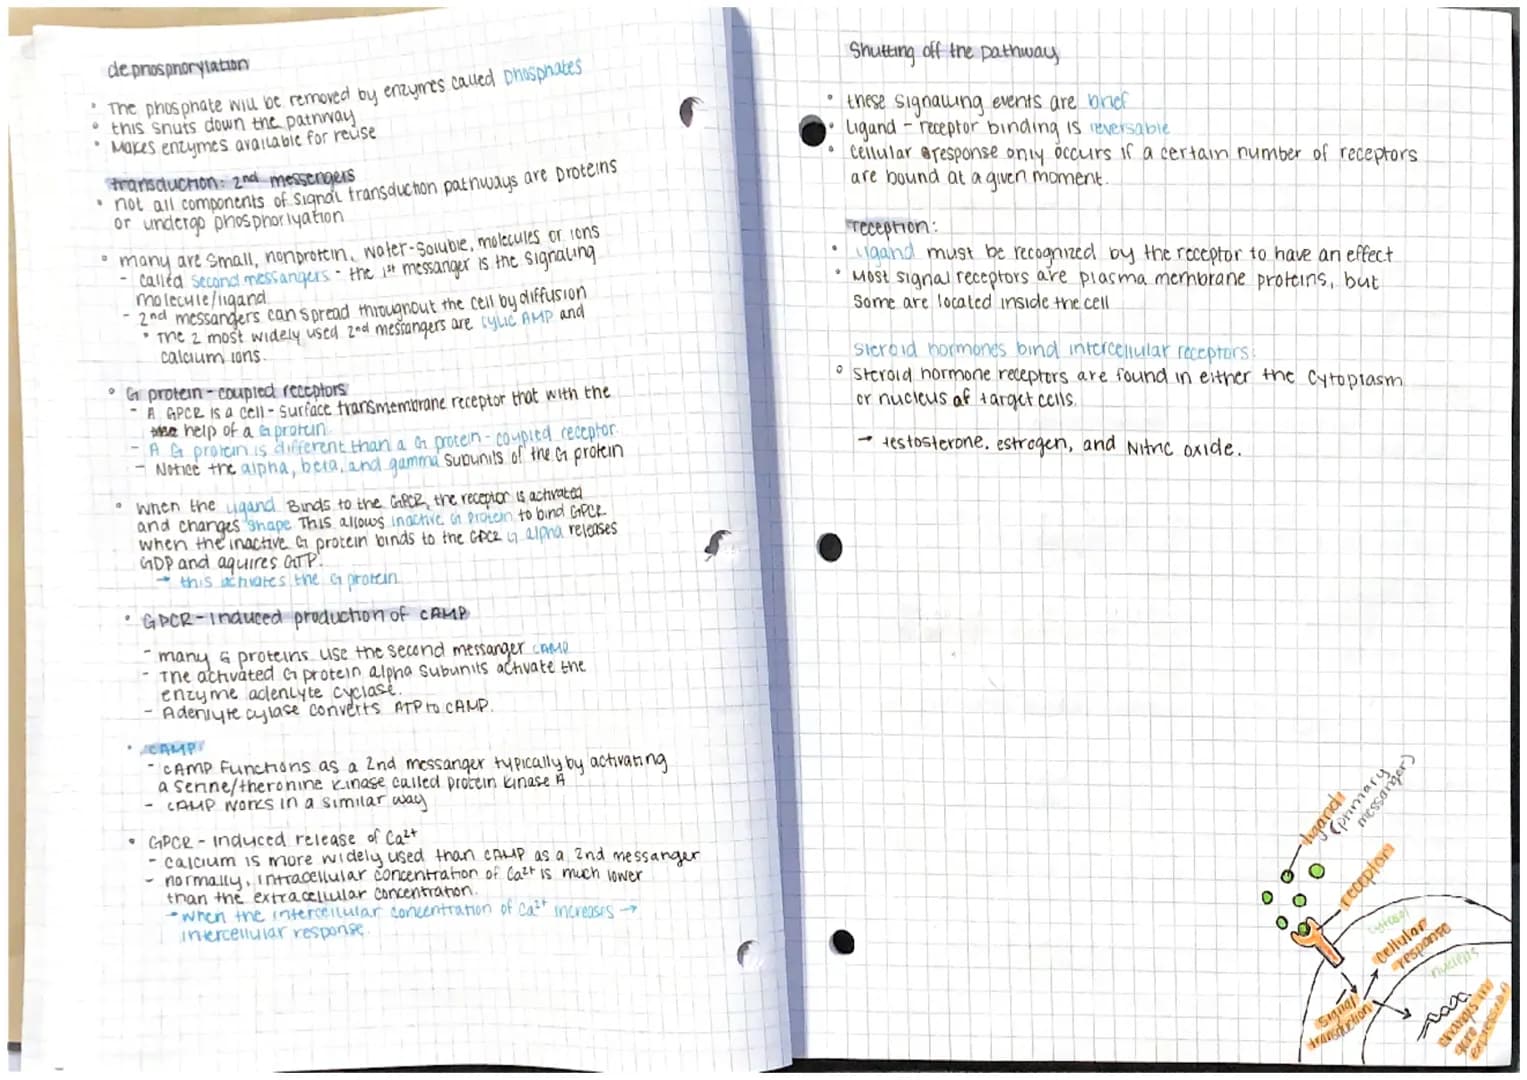 dephosphorylation
• The phosphate will be removed by enzymes called phosphates
• this shuts down the pathway
• Makes enzymes available for reuse
transduction: 2nd messengers
• not all components of signal transduction pathways are proteins
or undergo phosphorlyation
• many are small, nonprotein, water-soluble, molecules or ions
- called second messangers - the 1st messanger is the signaling
molecule/ligand
- 2nd messangers can spread throughout the cell by diffusion
• The 2 most widely used 2nd messangers are cylic AMP and
calcium ions.
• G protein-coupled receptors
- A GPCR is a cell-surface transmembrane receptor that with the
help of a G protein
- A G protein is different than a G protein-coupled receptor.
- Notice the alpha, beta, and gamma subunits of the G protein
• when the ligand Binds to the GPCR, the receptor is activated
and changes shape This allows inactive G protein to bind GPCR
when the inactive G protein binds to the GPCR G alpha releases
GDP and aquires GTP.
→ this activates the G protein
• GPCR-Induced production of cAMP
- many G proteins use the second messanger cAMP
- The activated G protein alpha subunits activate the
enzyme adenlyte cyclase.
- Adenlyte cylase converts ATP to cAMP.
• cAMP
- cAMP functions as a 2nd messanger typically by activating
a serine/theronine kinase called protein kinase A
- cAMP works in a similar way
• GPCR - induced release of Ca2+
- calcium is more widely used than cAMP as a 2nd messanger
- normally, intracellular concentration of Ca2+ is much lower
than the extracellular concentration.
→ when the intercellular concentration of Ca2+ increases →
intercellular response.
Shutting off the pathway
• these signaling events are brief
• Ligand - receptor binding is reversable
• cellular response only occurs if a certain number of receptors
are bound at a given moment.
reception:
• ligand must be recognized by the receptor to have an effect
• Most signal receptors are plasma membrane proteins, but
some are located inside the cell
steroid hormones bind intercellular receptors:
• steroid hormone receptors are found in either the cytoplasm
or nucleus of target cells.
→ testosterone, estrogen, and Nitric oxide.
ligand
(primary
messanger)
receptor
cytosol
cellular
response
nucleus
signal
transduction
changes in
gene
expression